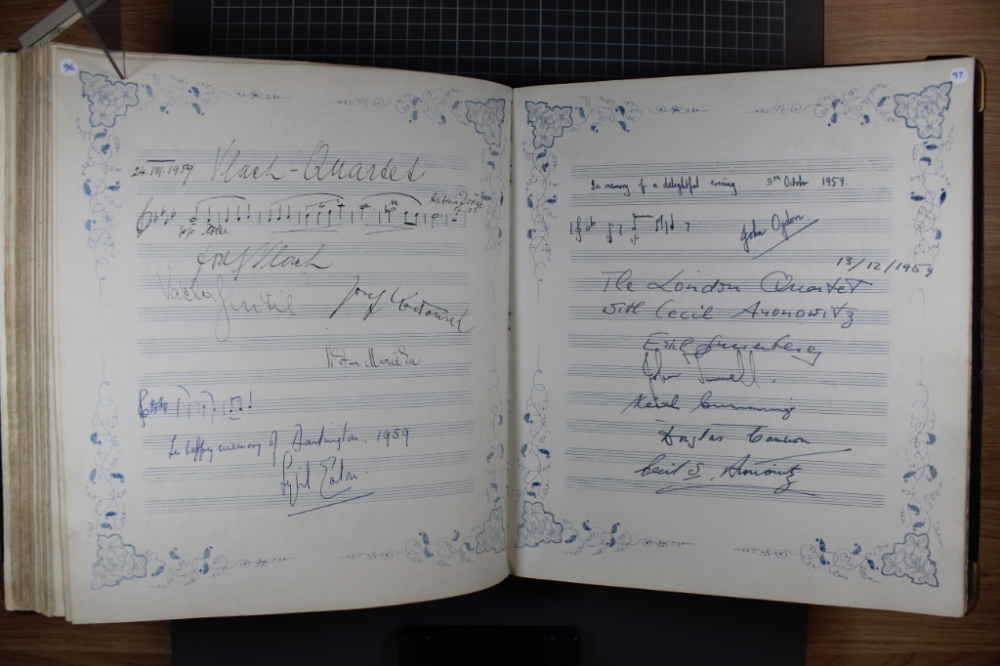 96.
24.VIII.1959 Vlach-Quartet
Antonín Dvořák
op. 105
Josef Vlach
Václav Snítil
Josef Koďousek
Viktor Moučka
In happy memory of Dartington, 1959
Sybil Eaton.
97.
In memory of a delightful evening 9th October 1959.
sf
John Ogdon.
13/12/1959
The London Quartet
with Cecil Aronowitz
Erich Gruenberg
John Tunnell.
Keith Cummings
Douglas Cameron
Cecil S. Aronowitz